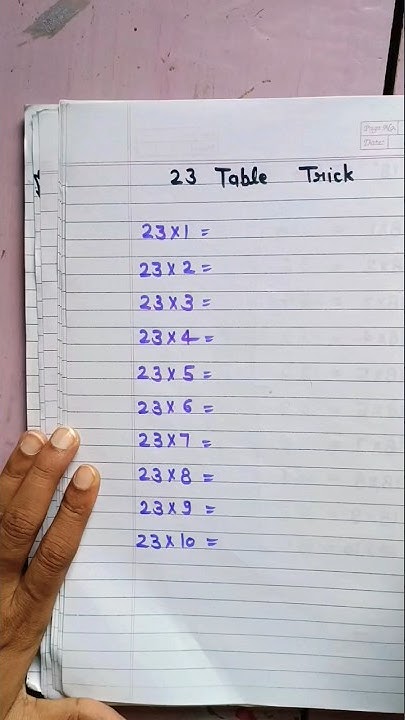 Page No.
Date:
23 Table Trick
23×1 =
23×2 =
23×3 =
23×4 =
23×5 =
23×6 =
23×7 =
23×8 =
23×9 =
23×10 =